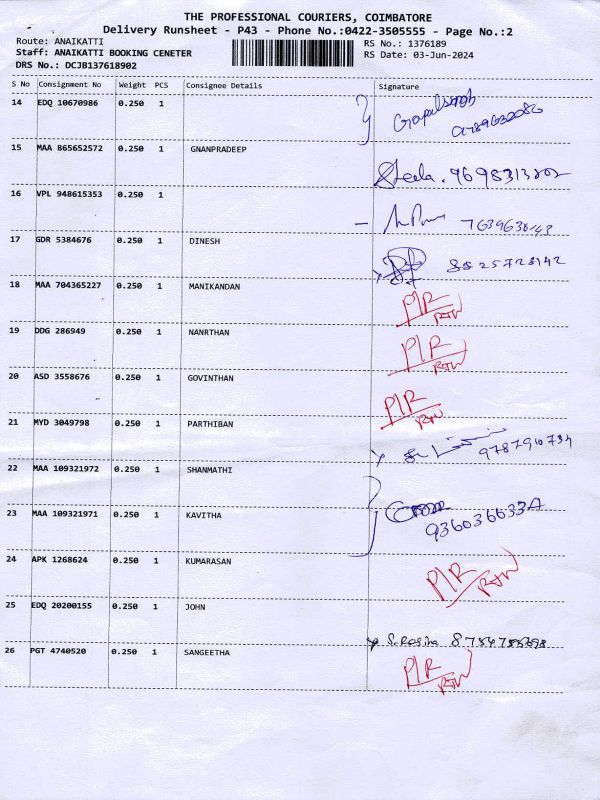 THE PROFESSIONAL COURIERS, COIMBATORE
Delivery Runsheet - P43 - Phone No.:0422-3505555 - Page No.:2
Route: ANAIKATTI RS No.: 1376189
Staff: ANAIKATTI BOOKING CENETER RS Date: 03-Jun-2024
DRS No.: DCJB137618902
S No Consignment No Weight PCS Consignee Details Signature
14 EDQ 10670986 0.250 1
15 MAA 865652572 0.250 1 GNANPRADEEP
Sheela. 9698313202
16 VPL 948615353 0.250 1
17 GDR 5384676 0.250 1 DINESH
8825728142
18 MAA 704365227 0.250 1 MANIKANDAN
P/R
RTN
19 DDG 286949 0.250 1 NANRTHAN
P/R
RTN
20 ASD 3558676 0.250 1 GOVINTHAN
P/R
RTN
21 MYD 3049798 0.250 1 PARTHIBAN
9787910734
22 MAA 109321972 0.250 1 SHANMATHI
23 MAA 109321971 0.250 1 KAVITHA
24 APK 1268624 0.250 1 KUMARASAN
P/R
RTN
25 EDQ 20200155 0.250 1 JOHN
26 PGT 4740520 0.250 1 SANGEETHA
P/R
RTN